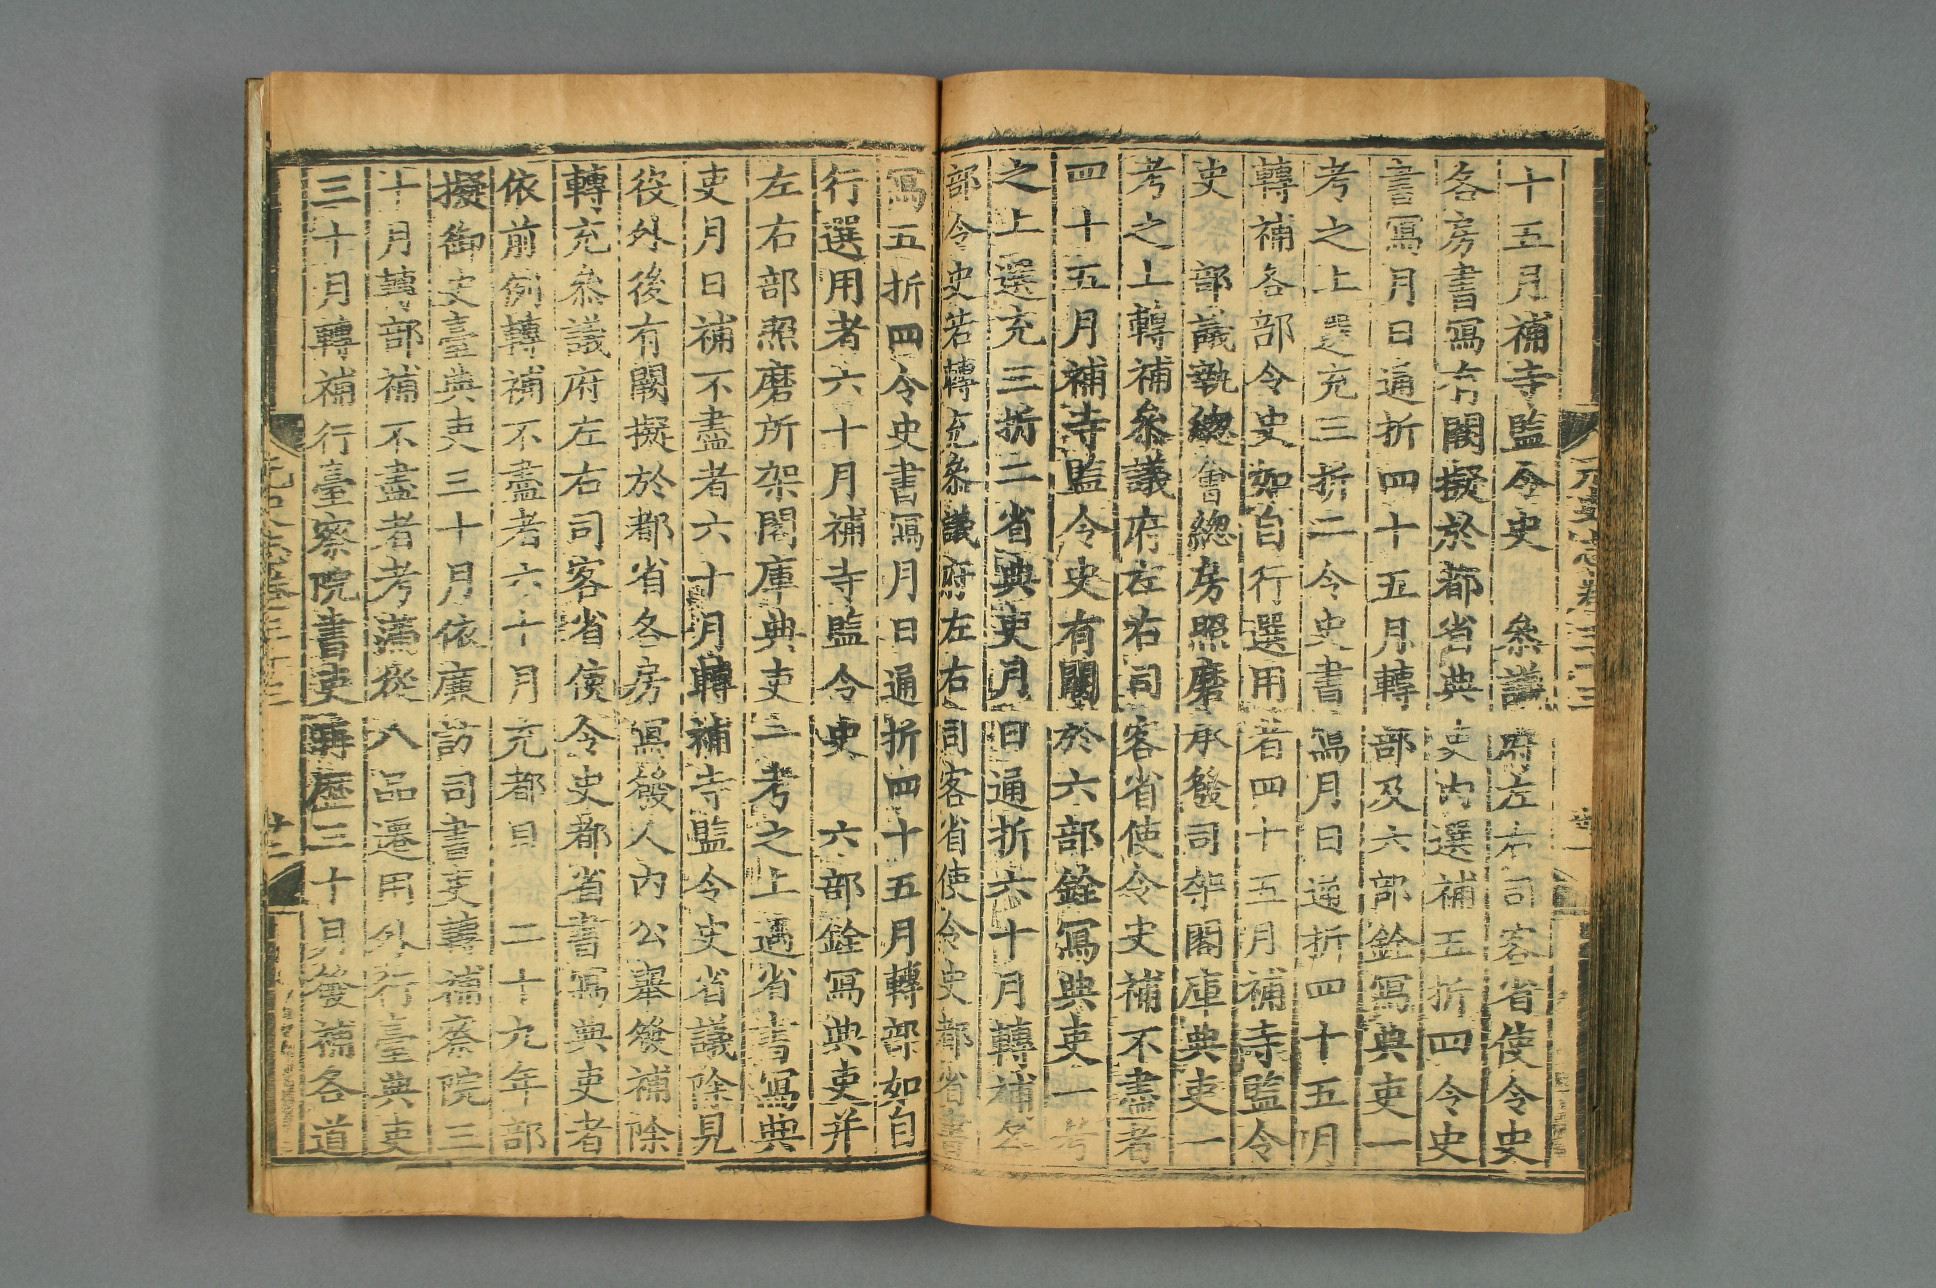 十五月補寺監令史 叅議府左右司客省使令史
各房書寫有闕擬於都省典吏内選補五折四令史
書寫月日通折四十五月轉部及六部銓寫典吏一
考之上選充三折二令史書寫月日通折四十五月
轉補各部令史如自行選用者四十五月補寺監令
史 部議執總會總房照磨承發司架閣庫典吏一
考之上轉補叅議府左右司客省使令史補不盡者
四十五月補寺監令史有闕於六部銓寫典吏一考
之上選充三折二省典吏月日通折六十月轉補各
部令史若轉充叅議府左右司客省使令史都省書
寫五折四令史書寫月日通折四十五月轉部如自
行選用者六十月補寺監令史 六部銓寫典吏并
左右部照磨所架閣庫典吏二考之上遇省書寫典
吏月日補不盡者六十月轉補寺監令史省議除見
役外後有闕擬於都省各房寫發人内公舉發補除
轉充叅議府左右司客省使令史都省書寫典吏者
依前例轉補不盡者六十月充都目 二十九年部
擬御史臺典吏三十月依廉訪司書吏轉補察院三
十月轉部補不盡者考滿從八品遷用外行臺典吏
三十月轉補行臺察院書吏再歷三十月發補各道
元史志卷三十三